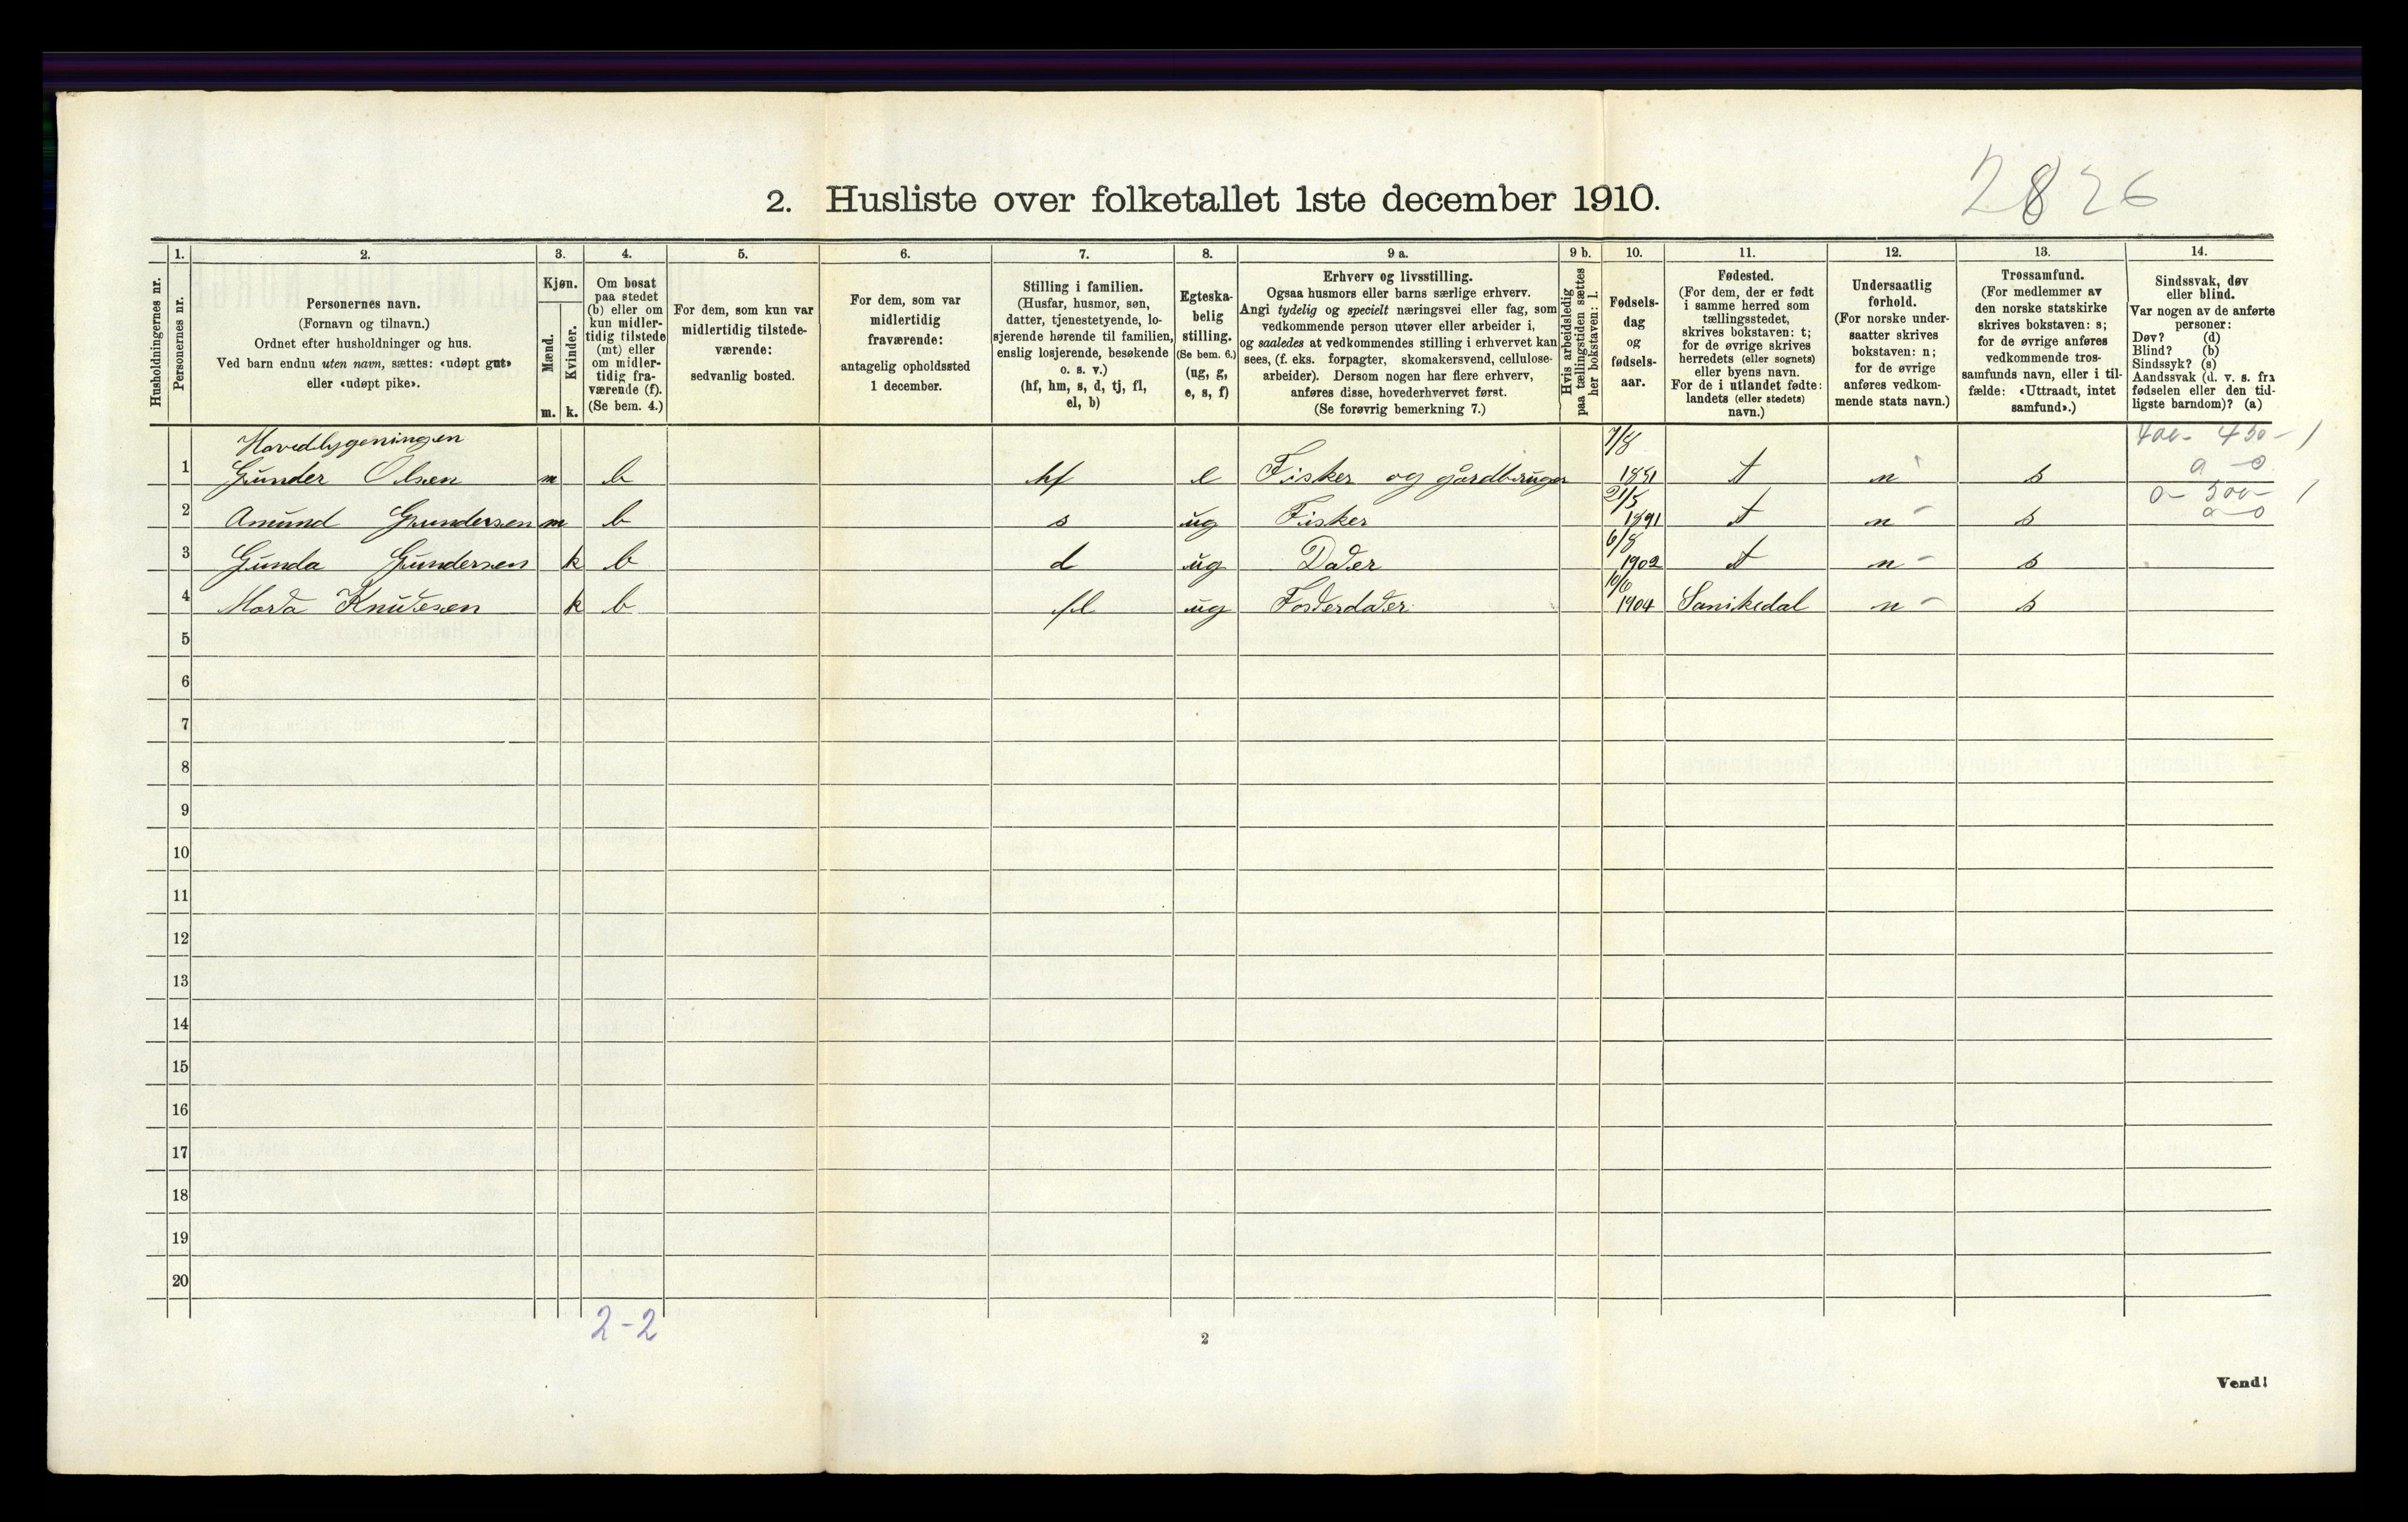 2826
2. Husliste over folketallet 1ste december 1910.
Husholdningernes nr.
1.
Personernes nr.
2.
Personernes navn.
(Fornavn og tilnavn.)
Ordnet efter husholdninger og hus.
Ved barn endnu uten navn, sættes: «udøpt gut»
eller «udøpt pike».
3.
Kjøn.
Mænd.
Kvinder.
m. k.
4.
Om bosat
paa stedet
(b) eller om
kun midler-
tidig tilstede
(mt) eller
om midler-
tidig fra-
værende (f).
(Se bem. 4.)
5.
For dem, som kun var
midlertidig tilstede-
værende:
sedvanlig bosted.
6.
For dem, som var
midlertidig
fraværende:
antagelig opholdssted
1 december.
7.
Stilling i familien.
(Husfar, husmor, søn,
datter, tjenestetyende, lo-
sjerende hørende til familien,
enslig losjerende, besøkende
o. s. v.)
(hf, hm, s, d, tj, fl,
el, b)
8.
Egteska-
belig
stilling.
(Se bem. 6.)
(ug, g,
e, s, f)
9 a.
Erhverv og livsstilling.
Ogsaa husmors eller barns særlige erhverv.
Angi tydelig og specielt næringsvei eller fag, som
vedkommende person utøver eller arbeider i,
og saaledes at vedkommendes stilling i erhvervet kan
sees, (f. eks. forpagter, skomakersvend, cellulose-
arbeider). Dersom nogen har flere erhverv,
anføres disse, hovederhvervet først.
(Se forøvrig bemerkning 7.)
9 b.
Hvis arbeidsledig
paa tællingstiden sættes
her bokstaven: l.
10.
Fødsels-
dag
og
fødsels-
aar.
11.
Fødested.
(For dem, der er født
i samme herred som
tællingsstedet,
skrives bokstaven: t;
for de øvrige skrives
herredets (eller sognets)
eller byens navn.
For de i utlandet fødte:
landets (eller stedets)
navn.)
12.
Undersaatlig
forhold.
(For norske under-
saatter skrives
bokstaven: n;
for de øvrige
anføres vedkom-
mende stats navn.)
13.
Trossamfund.
(For medlemmer av
den norske statskirke
skrives bokstaven: s;
for de øvrige anføres
vedkommende tros-
samfunds navn, eller i til-
fælde: «Uttraadt, intet
samfund».)
14.
Sindssvak, døv
eller blind.
Var nogen av de anførte
personer:
Døv? (d)
Blind? (b)
Sindssyk? (s)
Aandssvak (d. v. s. fra
fødselen eller den tid-
ligste barndom)? (a)
Hovedbygeningen 7/8 400- 450- 1
1 Gunder Olsen m b hf e Fisker og gårdbruger 1851 t n s a-0
21/5 0- 500- 1
2 Amund Gundersen m b s ug Fisker 1891 t n - s a-0
6/8
3 Gunda Gundersen k b d ug Dater 1902 t n - s
10/6
4 Marta Knudsen k b fl ug Fosterdater 1904 Sanikedal n - s
5
6
7
8
9
10
11
12
13
14
15
16
17
18
19
20
2-2
2
Vend!